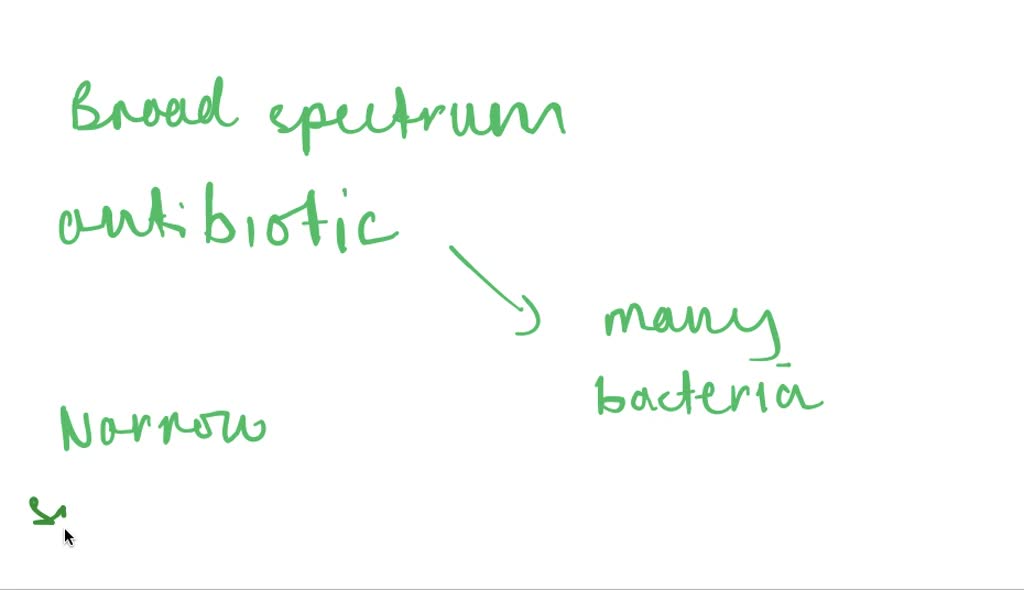 Broad spectrum
antibiotic
many
bacteria
Narrow